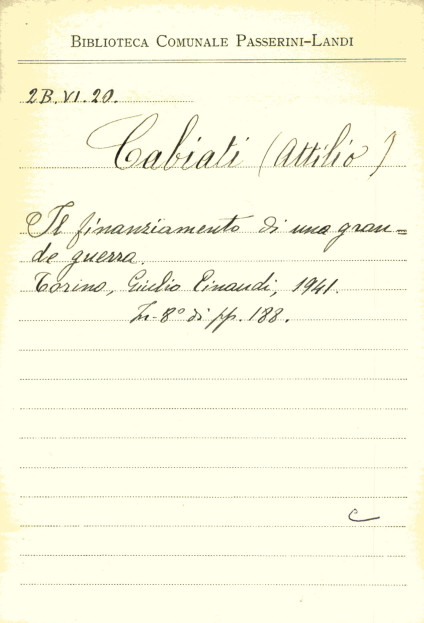 BIBLIOTECA COMUNALE PASSERINI-LANDI
2B.VI.20.
Cabiati (Attilio)
Il finanziamento di una gran=
de guerra.
Torino, Giulio Einaudi, 1941.
In-8° di pp. 188.
C